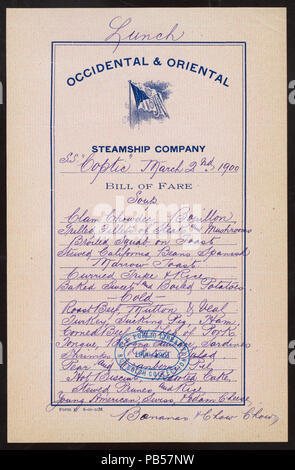 Lunch
OCCIDENTAL & ORIENTAL
STEAMSHIP COMPANY
S.S. "Coptic" March 2nd, 1900
BILL OF FARE
Soup
Clam Chowder Bouillon
Grilled Fillets of Steak and Mushrooms
Broiled Squab on Toast
Stewed California Beans Spanish
Marrow Toast
Curried Tripe & Rice
Baked Sweet and Boiled Potatoes
- Cold -
Roast Beef Mutton & Veal
Turkey Sucking Pig, Ham
Corned Beef of Pork
Tongue, Bologna Sardines
Shrimps Salad
Pear and Pie
Hot Biscuit, Cake,
Stewed Prunes and Rice
Young American, Swiss, & Edam Cheese
Bananas & Chow Chow
PUBLIC LIBRARY
alamy
Image ID: PB57NW
www.alamy.com